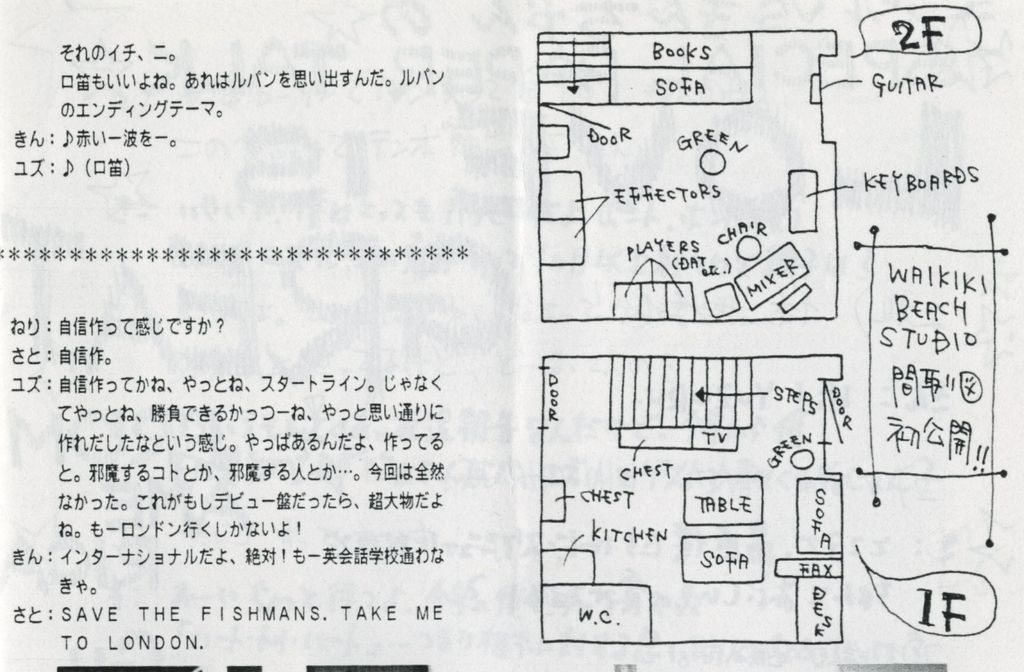 それのイチ、ニ。
口笛もいいよね。あれはルパンを思い出すんだ。ルパン
のエンディングテーマ。
きん：♪赤い一波を一。
ユズ：♪（口笛）
************************************
ねり：自信作って感じですか？
さと：自信作。
ユズ：自信作ってかね、やっとね、スタートライン。じゃなく
てやっとね、勝負できるかっつーね、やっと思い通りに
作れだしたなという感じ。やっぱあるんだよ、作ってる
と。邪魔するコトとか、邪魔する人とか…。今回は全然
なかった。これがもしデビュー盤だったら、超大物だよ
ね。もーロンドン行くしかないよ！
きん：インターナショナルだよ、絶対！もー英会話学校通わな
きゃ。
さと：SAVE THE FISHMANS. TAKE ME
TO LONDON.
2F
BOOKS
SOFA
GUITAR
DOOR
GREEN
EFFECTORS
KEYBOARDS
PLAYERS
(DAT etc.)
CHAIR
MIXER
WAIKIKI
BEACH
STUDIO
間取り図
初公開!!
DOOR
STEPS
DOOR
TV
GREEN
CHEST
CHEST
TABLE
SOFA
KITCHEN
SOFA
FAX
DESK
W.C.
1F